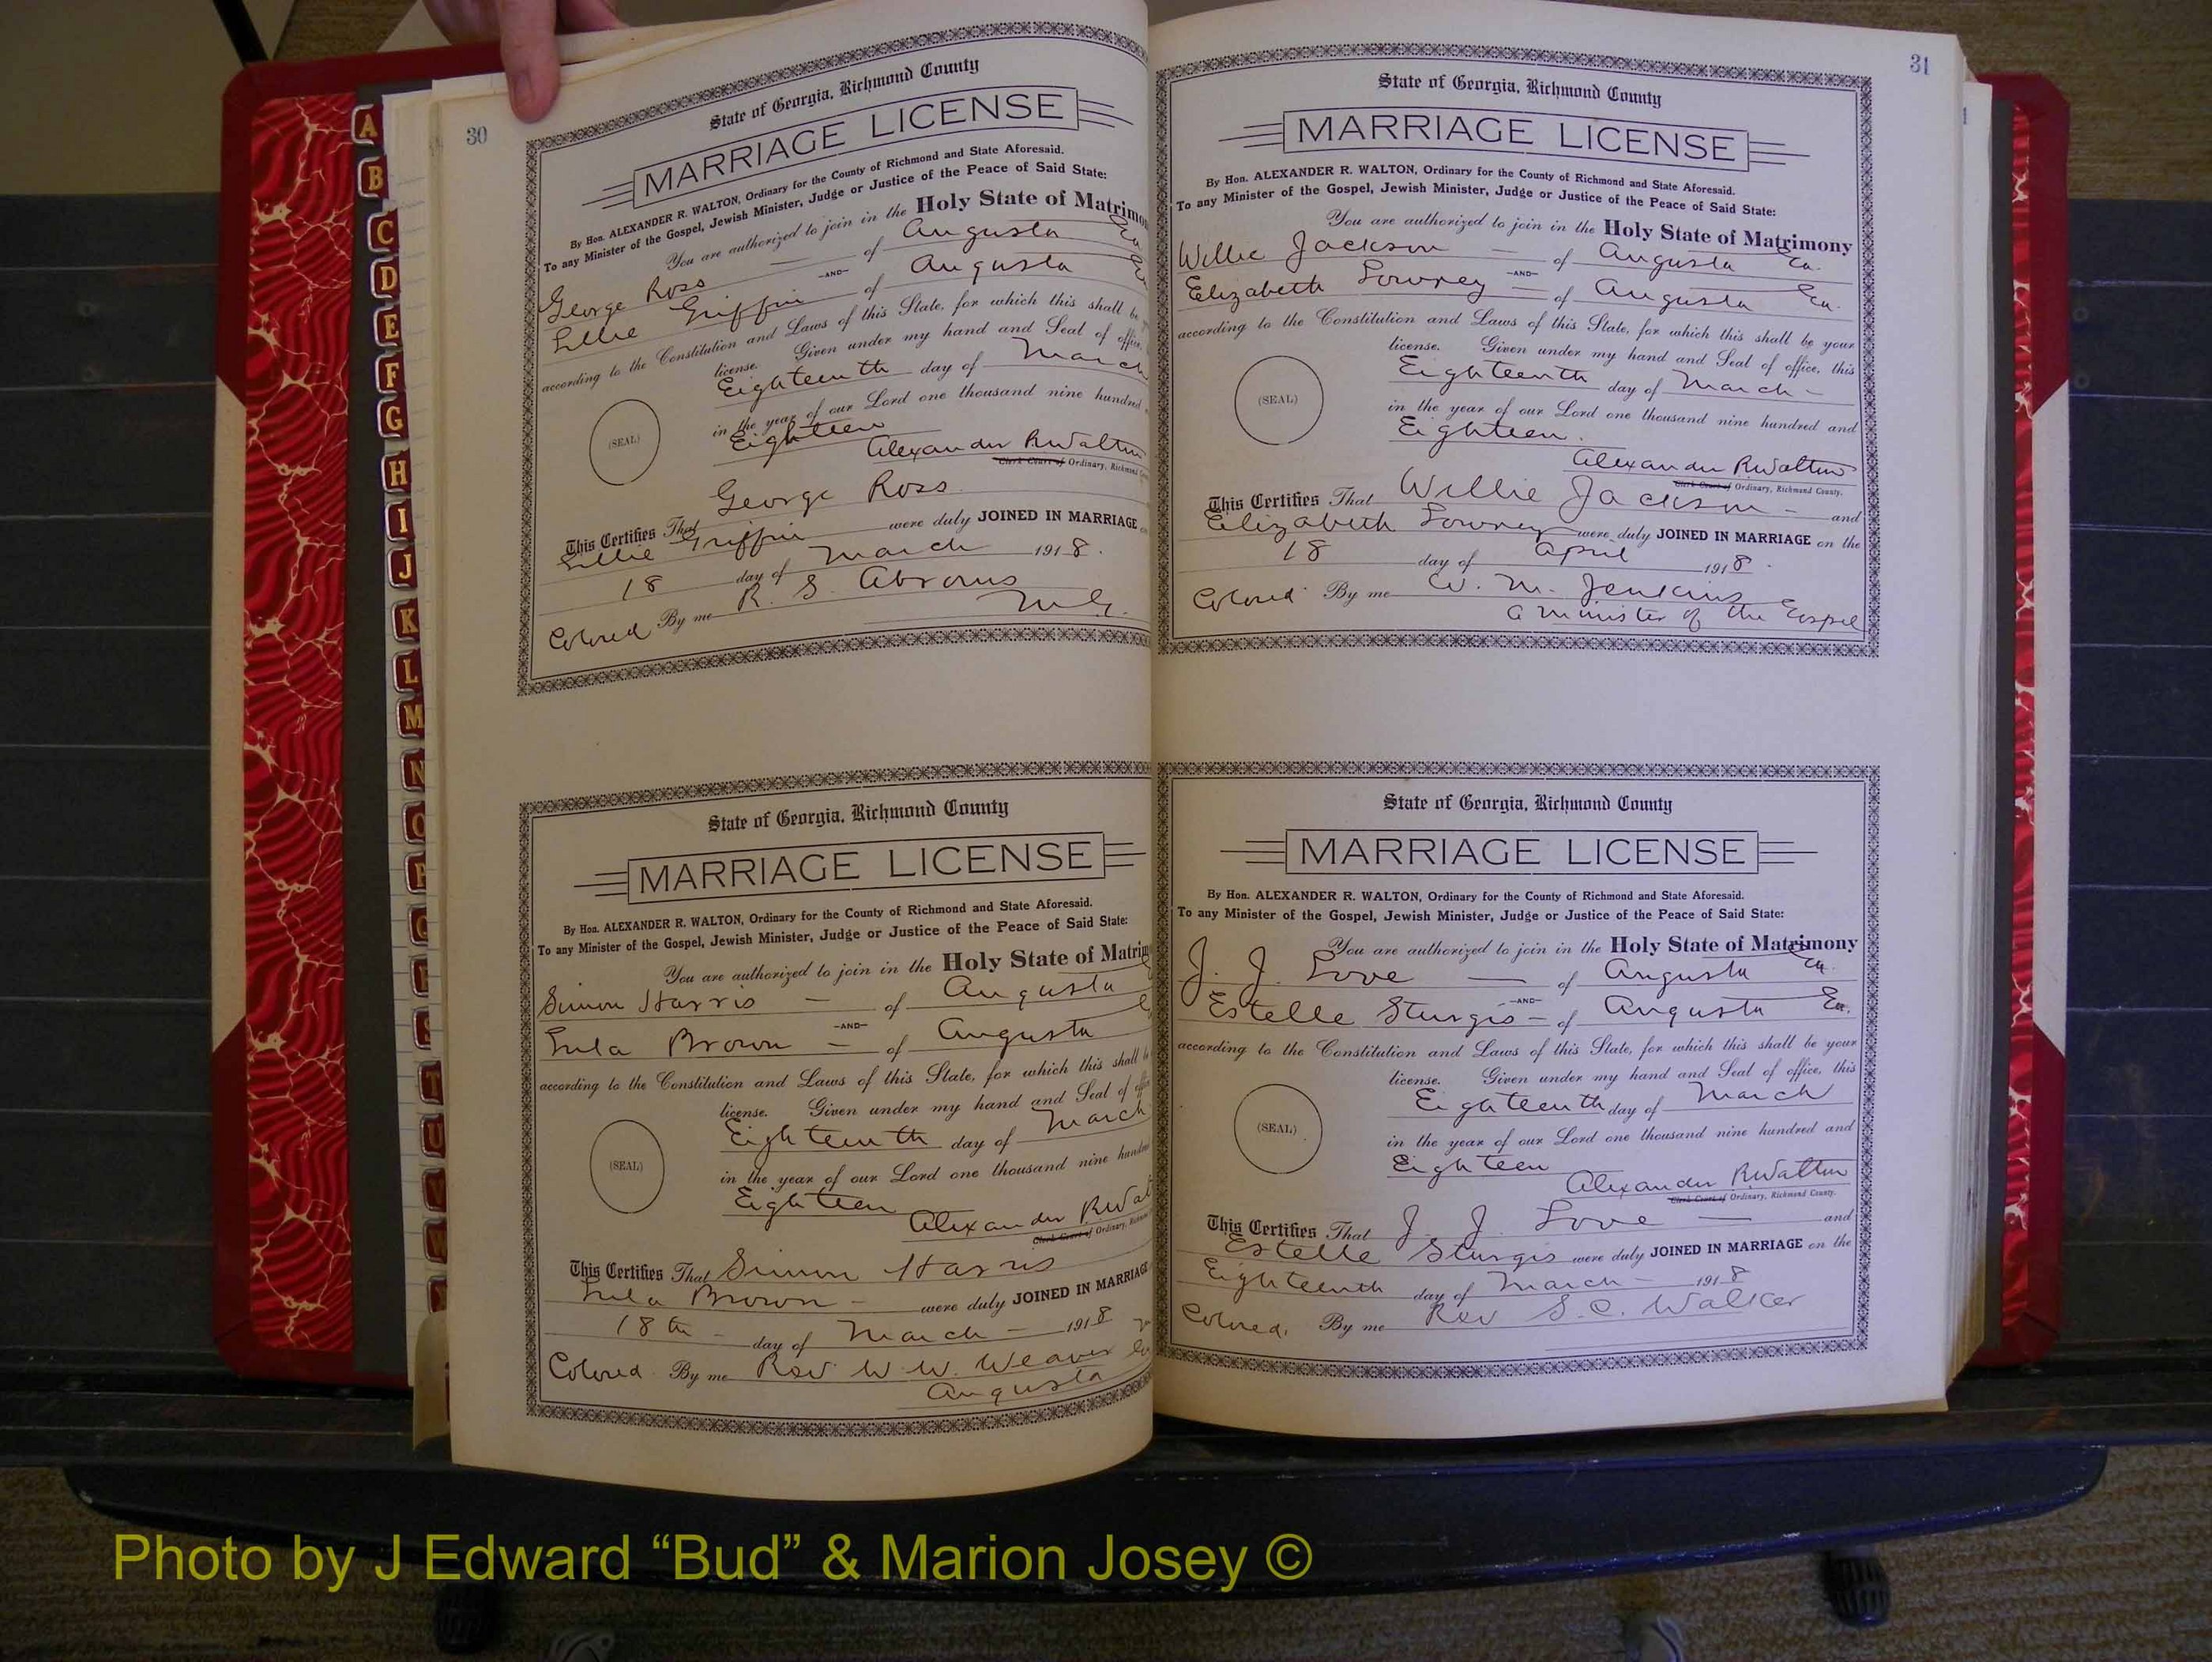 30
State of Georgia, Richmond County
MARRIAGE LICENSE
By Hon. ALEXANDER R. WALTON, Ordinary for the County of Richmond and State Aforesaid.
To any Minister of the Gospel, Jewish Minister, Judge or Justice of the Peace of Said State:
You are authorized to join in the Holy State of Matrimo
George Ross — of Augusta Ga
—AND—
Lillie Griffin of Augusta
according to the Constitution and Laws of this State, for which this shall be
license. Given under my hand and Seal of office,
Eighteenth day of March
in the year of our Lord one thousand nine hundred
Eighteen
(SEAL)
Alexander R Walton
Clerk Court of Ordinary, Richmond
This Certifies That George Ross
Lillie Griffin were duly JOINED IN MARRIAGE
18 day of March 1918.
Colored By me R. S. Abrams
M.G.
State of Georgia, Richmond County
MARRIAGE LICENSE
By Hon. ALEXANDER R. WALTON, Ordinary for the County of Richmond and State Aforesaid.
To any Minister of the Gospel, Jewish Minister, Judge or Justice of the Peace of Said State:
You are authorized to join in the Holy State of Matrim
Simon Harris — of Augusta
—AND—
Lula Brown — of Augusta
according to the Constitution and Laws of this State, for which this shall b
license. Given under my hand and Seal of offic
Eighteenth day of March
in the year of our Lord one thousand nine hundre
Eighteen
(SEAL)
Alexander R Wal
Clerk Court of Ordinary,
This Certifies That Simon Harris
Lula Brown — were duly JOINED IN MARRIAGE
18th — day of March — 1918
Colored By me Rev W W. Weaver
Augusta
31
State of Georgia, Richmond County
MARRIAGE LICENSE
By Hon. ALEXANDER R. WALTON, Ordinary for the County of Richmond and State Aforesaid.
To any Minister of the Gospel, Jewish Minister, Judge or Justice of the Peace of Said State:
You are authorized to join in the Holy State of Matrimony
Willie Jackson — of Augusta Ga.
—AND—
Elizabeth Lowrey — of Augusta Ga.
according to the Constitution and Laws of this State, for which this shall be your
license. Given under my hand and Seal of office, this
Eighteenth day of March —
in the year of our Lord one thousand nine hundred and
Eighteen.
(SEAL)
Alexander R Walton
Clerk Court of Ordinary, Richmond County.
This Certifies That Willie Jackson — and
Elizabeth Lowrey were duly JOINED IN MARRIAGE on the
18 day of April 1918.
Colored By me W. M. Jenkins
a minister of the Gospel
State of Georgia, Richmond County
MARRIAGE LICENSE
By Hon. ALEXANDER R. WALTON, Ordinary for the County of Richmond and State Aforesaid.
To any Minister of the Gospel, Jewish Minister, Judge or Justice of the Peace of Said State:
You are authorized to join in the Holy State of Matrimony
J. J. Love — of Augusta Ga.
—AND—
Estelle Sturgis — of Augusta Ga.
according to the Constitution and Laws of this State, for which this shall be your
license. Given under my hand and Seal of office, this
Eighteenth day of March
in the year of our Lord one thousand nine hundred and
Eighteen
(SEAL)
Alexander R Walton
Clerk Court of Ordinary, Richmond County.
This Certifies That J. J. Love — and
Estelle Sturgis were duly JOINED IN MARRIAGE on the
Eighteenth day of March — 1918
Colored. By me Rev S. C. Walker
A
B
C
D
E
F
G
H
I
J
K
L
M
N
O
P
Q
R
S
T
U
V
W
Photo by J Edward “Bud” & Marion Josey ©